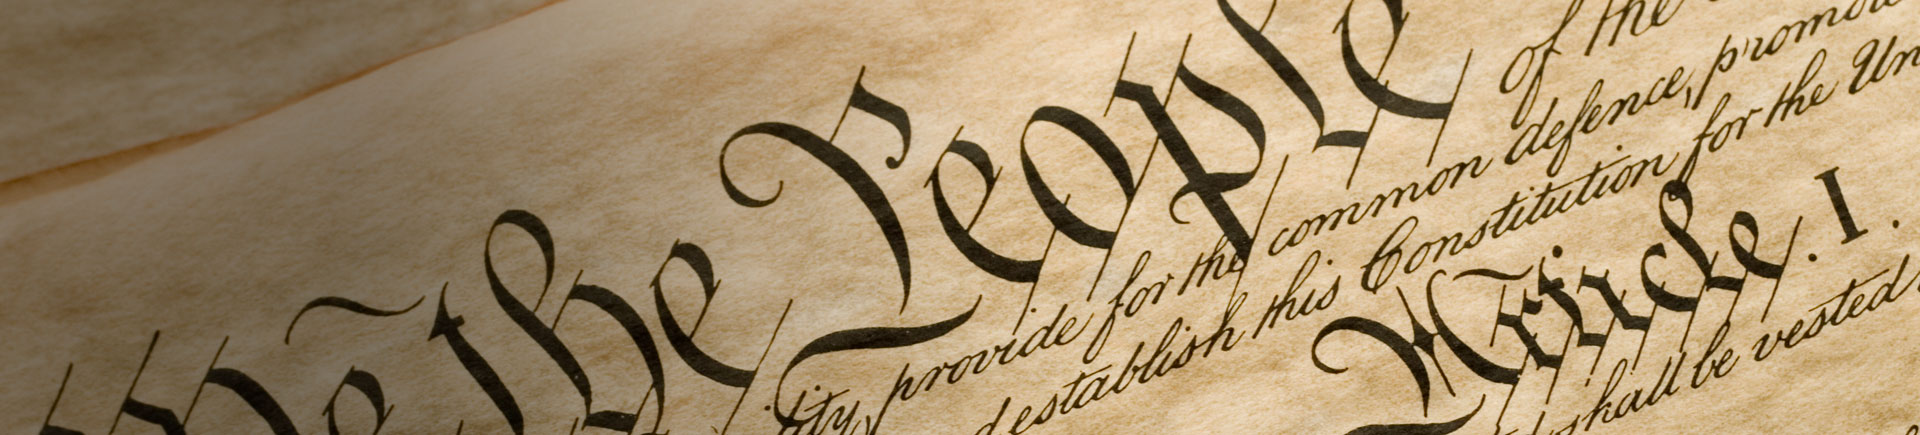 We the People of the
ity, provide for the common defence, promo
d establish this Constitution for the Un
Article. I.
shall be vested